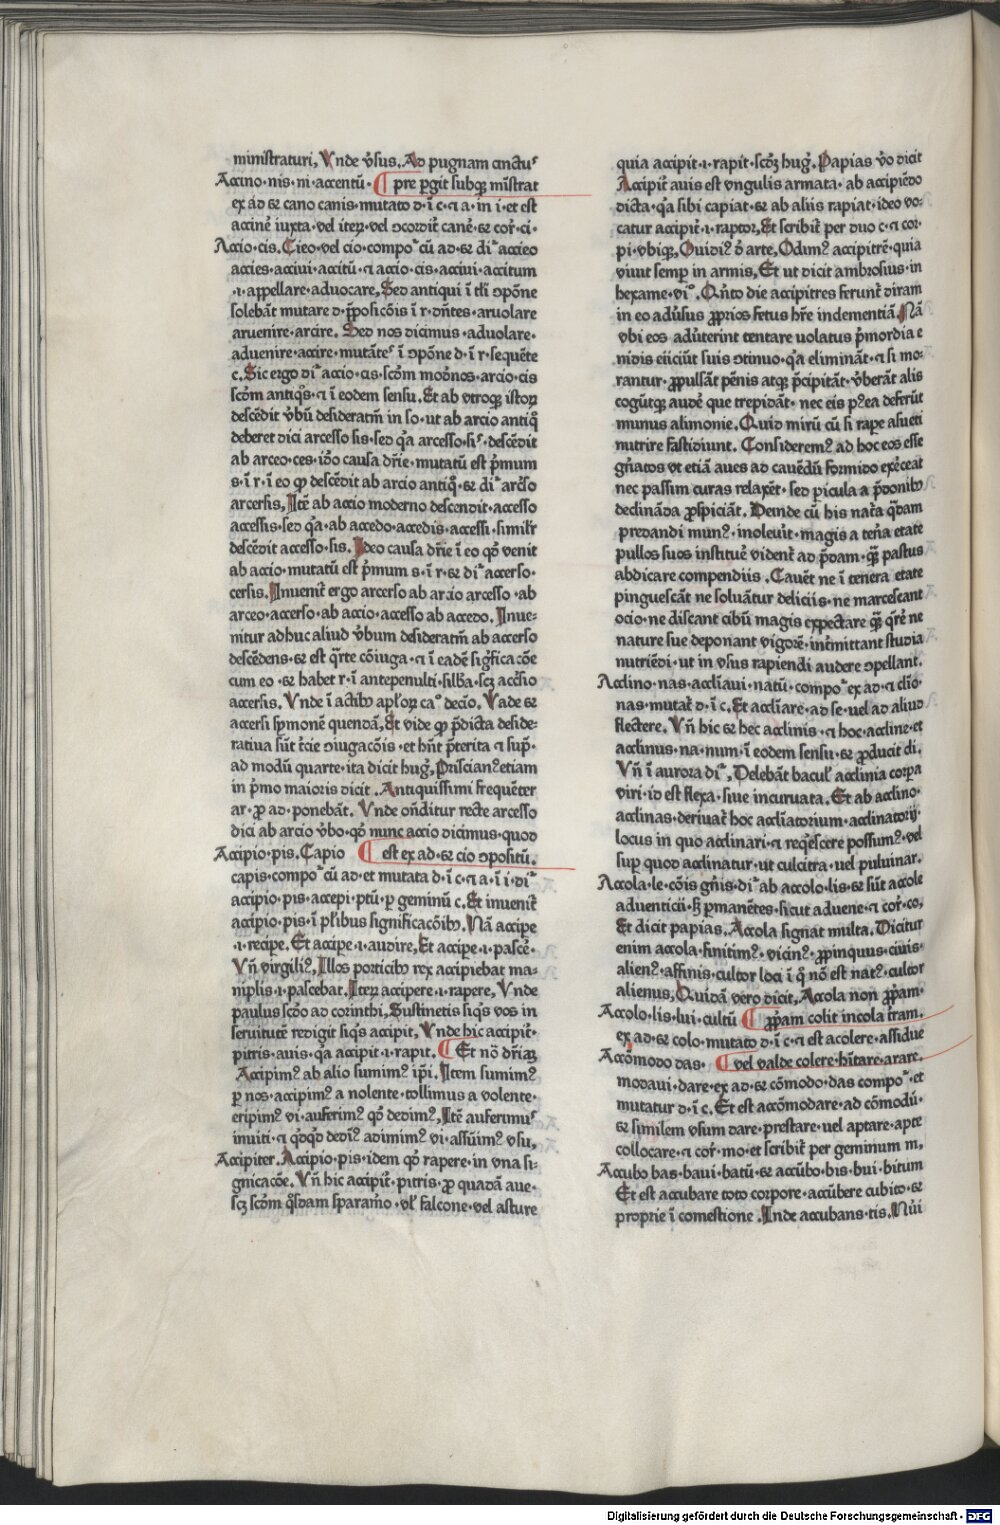 ministraturi, Vnde v̓sus. Ad pugnam cinctuˢ
Accino·nis·ni·accentū· ¶ pre ꝑgit subqꝫ mīstrat
ex ad ⁊ cano canis·mutato d·ī c·⁊ a·in i·et est
accinē iuxta·vel iteꝝ·vel ↄcordit̓ canē·⁊ cor̓·ci·
Accio·cis. Cieo·vel cio·compoⁿ cū ad·⁊ diⁿ accieo
accies·acciui·accitū·⁊ accio·cis·acciui·accitum
·i·appellare·aduocare, Sed antiqui ī tłi ↄpōne
solebāt mutare d·p̄posicōis ī r·dn̄tes·aruolare
aruenire·arcire. Sed nos dicimus·aduolare·
aduenire·accire·mutāteˢ ī ↄpōne d·ī r·sequēte
c. Sic ergo diⁿ accio·cis·scd̄m mod̓nos·arcio·cis
scd̄m antiq̄s·⁊ ī eodem sensu. Et ab vtroqꝫ istoꝝ
descēdit v̓bū desideratm̄ in so·ut ab arcio antiq̄
deberet dici arcesso sis·sed q̓a arcesso·siˢ·descēdit
ab arceo·ces·id̓o causa dr̄ie·mutatū est p̓mum
s·ī r·ī eo ꝙ descēdit ab arcio antiq̄·⁊ diⁿ arcs̓o
arcersis, Itē ab accio moderno descendit·accesso
accessis·sed q̓a·ab accedo·accedis·accessi·simili̓r
descēdit accesso·sis. Ideo causa dr̄ie ī eo qd̓ venit
ab accio·mutatū est p̓mum s·ī r·⁊ diⁿ accerso·
cersis. Inuenit̓ ergo arcerso ab arcio arcesso ·ab
arceo·accerso·ab accio·accesso ab accedo. Inue-
nitur adhuc aliud v̓bum desideratm̄ ab accerso
descēdens·⁊ est q̓rte cōiuga·⁊ ī eadē sig̓ficacōe
cum eo·⁊ habet r·ī antepenulti·silba·scꝫ accs̓io
accersis. Vnde ī actibꝰ apl̓oꝝ caº decīo, Vade ⁊
accersi symonē quendā, Et vide ꝙ p̄dicta deside-
ratiua sūt t̓cie ↄiugacōis·et hn̄t p̄terita ⁊ sup̄·
ad modū quarte·ita dicit hug̓, Priscianꝰ etiam
in p̓mo maioris dicit. Antiquissimi frequēter
ar·ꝓ ad·ponebāt. Vnde on̄ditur recte arcesso
dici ab arcio v̓bo·qd̓ nunc accio dicimus·quod
Accipio·pis. Capio ¶ est ex ad·⁊ cio ↄpositū.
capis·compoⁿ cū ad·et mutata d·ī c·⁊ a·ī i·diⁿ
accipio·pis·accepi·ptū·ꝑ geminū c. Et inuenit̓
accipio·pis·ī pl̓ibus significacōibꝰ. Nā accipe
·i·recipe. Et accipe·i·audire, Et accipe·i·pascē·
Vn̄ virgiliꝰ, Illos porticibꝰ rex accipiebat ma-
niplis·i·pascebat. Iteꝝ accipere·i·rapere, Vnde
paulus scd̓o ad corinthi, Sustinetis siq̄s vos in
seruitutē redigit siq̄s accipit, Vnde hic accipit̓·
pitris·auis·q̓a accipit·i·rapit. ¶ Et nō dr̄iaꝫ
Accipimꝰ ab alio sumimꝰ ip̄i. Item sumimꝰ
ꝑ nos·accipimꝰ a nolente·tollimus a volente·
eripimꝰ vi·auferimꝰ qd̓ dedimꝰ, Itē auferimuˢ
inuiti·⁊ qd̓qd̓ dedīꝰ adimimꝰ vi·assūimꝰ vsu,
Accipiter. Accipio·pis·idem qd̓ rapere·in vna si-
gnicacōe. Vn̄ hic accipit̓·pitris·ꝓ quadā aue·
scꝫ scd̄m q̓sdam sparam̓o·vl̓ falcone·vel asture
quia accipit·i·rapit·scd̄ꝫ hug̓. Papias v̓o dicit
Accipit̓ auis est vngulis armata·ab accipiēdo
dicta·q̓a sibi capiat·⁊ ab aliis rapiat·ideo vo-
catur accipit̓·i·raptor, Et scribit̓ per duo c·⁊ cor̓·
pi·vbiqꝫ, Ouidiꝰ d̓ arte, Odimꝰ accipitrē·quia
viuit semꝑ in armis, Et ut dicit ambrosius·in
hexame·viº. Qn̓to die accipitres ferunt̓ diram
in eo adu̓sus ꝓprios fetus hr̄e indementiā. Nā
vbi eos adu̓terint tentare uolatus p̓mordia e
nidis eiiciūt suis ↄtinuo·q̓a elimināt·⁊ si mo-
rantur·ꝓpulsāt pēnis atqꝫ p̄cipitāt·v̓berāt alis
cogūtqꝫ audē que trepidāt·nec eis pꝰea deferūt
munus alimonie. Quid mirū cū si rape̓ asueti
nutrire fastidiunt. Consideremꝰ ad hoc eos esse
gn̄atos vt etiā aues ad cauēdū formido exc̓eat
nec passim curas relaxēt·sed ꝑicula a p̄donibꝰ
declināda ꝓspiciāt. Deinde cū his nat̓a q̄dam
predandi munꝰ·inoleuit·magis a ten̓a etate
pullos suos instituē vident̓ ad p̄dam·qꝫ̄ pastus
abdicare compendiis. Cauēt ne ī tenera etate
pinguescāt ne soluātur deliciis·ne marcescant
ocio·ne discant cibū magis expectare qꝫ̄ q̓rē ne
nature sue deponant vigorē·int̓mittant studia
nutriēdi·ut in vsus rapiendi audere ↄpellant.
Acclino·nas·accliaui·natū·compoⁿ ex ad·⁊ clīo·
nas·mutat̓ d·ī c. Et accliare·ad se·uel ad aliud
flectere. Vn̄ hic ⁊ hec acclinis·⁊ hoc·accline·et
acclinus·na·num·ī eodem sensu·⁊ ꝓducit cli.
Vn̄ ī aurora diⁿ, Delebāt bacul̓ acclinia corpa
viri·id est flexa·siue incuruata. Et ab acclino·
acclinas·deriuat̓ hoc accliatorium·acclinatorij·
locus in quo acclinari·⁊ req̓escere possumꝰ·vel
suꝑ quod acclinatur·ut culcitra·uel puluinar.
Accola·le·cōis gn̄is·diⁿ ab accolo·lis·⁊ sūt accole
aduenticii·sꝫ ꝑmanētes·sicut aduene·⁊ cor̓·co,
Et dicit papias. Accola signat multa. Dicitur
enim accola·finitimꝰ·vicinꝰ·ꝓpinquus·ciuis·
alienꝰ·affinis·cultor loci ī q̄ nō est natꝰ·cultor
alienus, Quidā vero dicit, Accola non ꝓpam·
Accolo·lis·lui·cultū ¶ ꝓpam colit incola t̓ram.
ex ad·⁊ colo·mutato d·ī c·⁊ est acolere·assidue
Accōmodo das· ¶ vel valde colere·hītare·arare.
modaui·dare·ex ad·⁊ cōmodo·das compoⁿ·et
mutatur d·ī c. Et est accōmodare·ad cōmodū·
⁊ similem vsum dare·prestare·uel aptare·apte
collocare·⁊ cor̓·mo·et scribit̓ per geminum m,
Accubo bas·baui·batū·⁊ accūbo·bis·bui·bitum
Et est accubare toto corpore·accūbere cubito·⁊
proprie ī comestione. Inde accubans·tis. Nūi
Digitalisierung gefördert durch die Deutsche Forschungsgemeinschaft - DFG